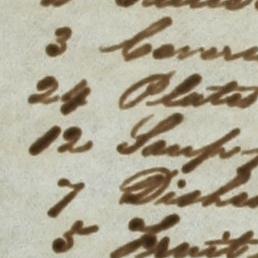 3 Covers
24 Plates
12 Soup
7 Dishes
5 Fruit